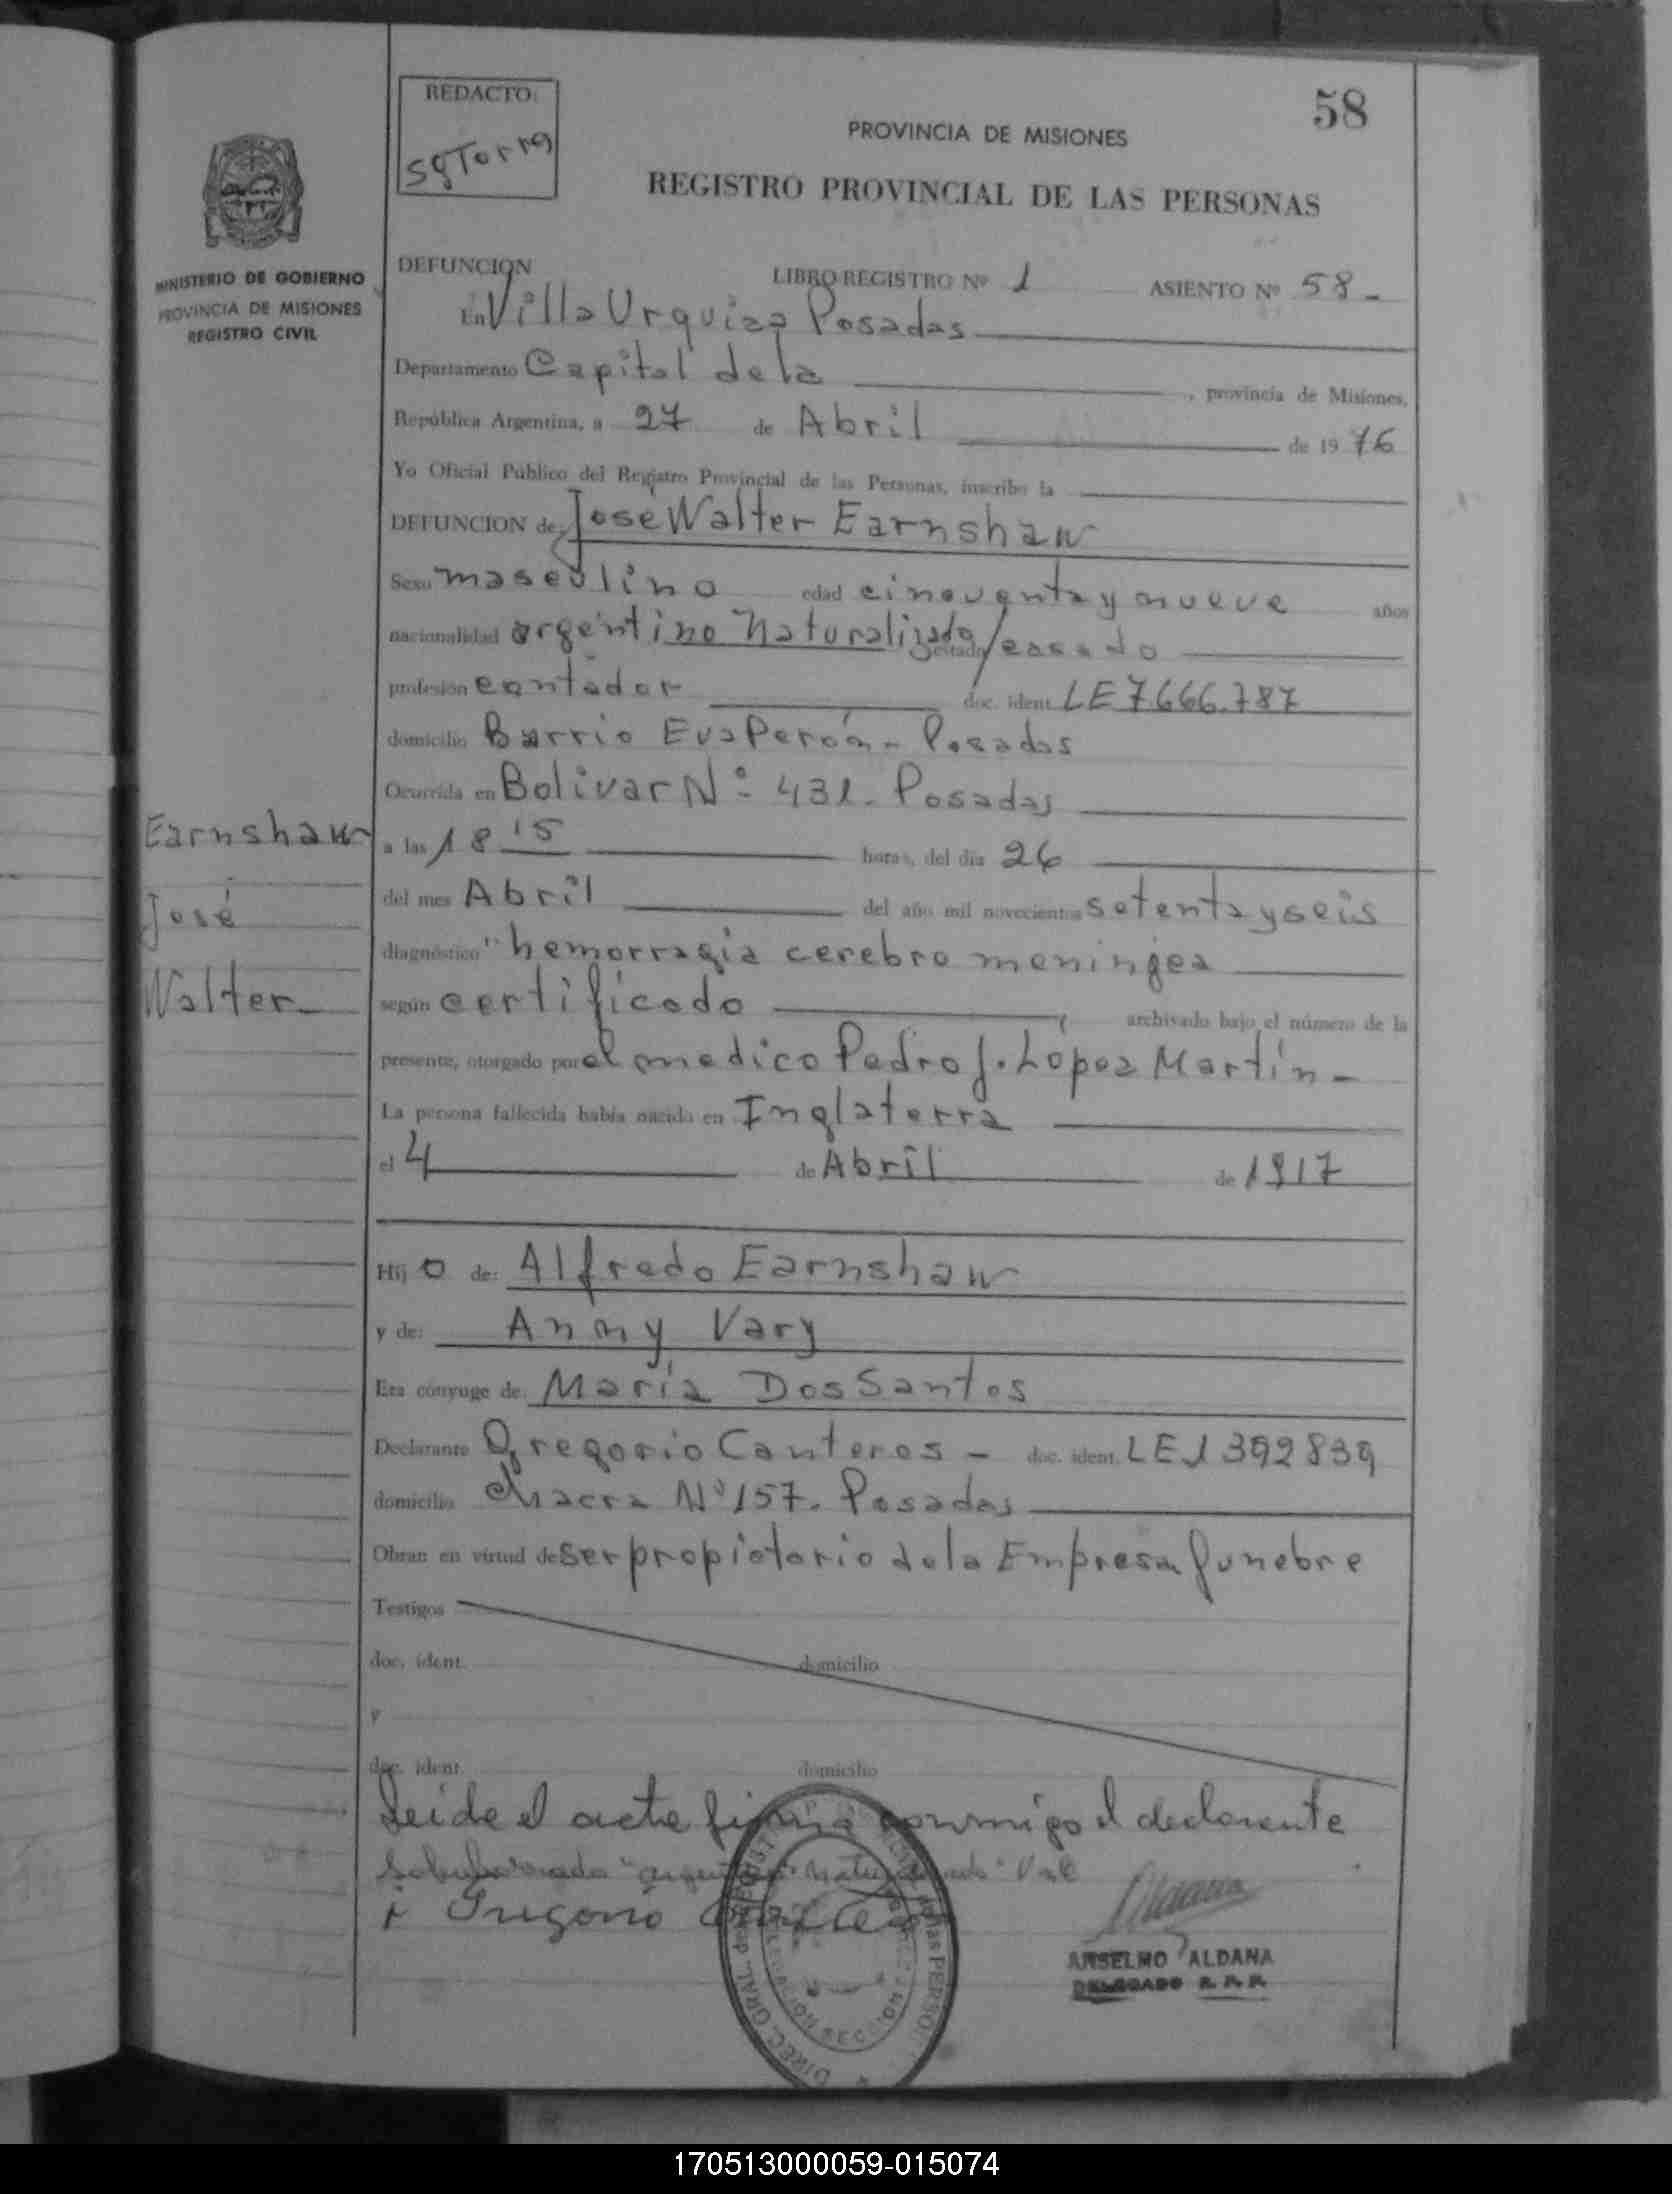 58
REDACTO:
PROVINCIA DE MISIONES
REGISTRO PROVINCIAL DE LAS PERSONAS
MINISTERIO DE GOBIERNO
PROVINCIA DE MISIONES
REGISTRO CIVIL
DEFUNCION LIBRO REGISTRO Nº 1 ASIENTO Nº 58 -
En Villa Urquiza Posadas
Departamento Capital de la , provincia de Misiones,
República Argentina, a 27 de Abril de 1976
Yo Oficial Público del Registro Provincial de las Personas, inscribo la
DEFUNCION de: Jose Walter Earnshaw
Sexo masculino edad cincuenta y nueve años
nacionalidad argentino Naturalizado / estado casado
profesión contador doc. ident. LE 7.666.787
domicilio Barrio Eva Perón - Posadas
Ocurrida en Bolivar Nº 431. Posadas
a las 18 15 horas, del día 26
del mes Abril del año mil novecientos setenta y seis
diagnóstico "hemorragia cerebro meningea
según certificado archivado bajo el número de la
presente, otorgado por el medico Pedro J. López Martín -
La persona fallecida había nacido en Inglaterra
el 4 de Abril de 1917
Hijo de: Alfredo Earnshaw
y de: Anny Vary
Era cónyuge de: María Dos Santos
Declarante Gregorio Canteros - doc. ident. LE 1392839
domicilio Chacra Nº 157. Posadas
Obran en virtud de ser propietario de la Empresa funebre
Testigos
doc. ident. domicilio
y
doc. ident. domicilio
Leida el acta firma conmigo el declarante
Earnshaw
José
Walter
ANSELMO ALDANA
DELEGADO R. P. P.
170513000059-015074